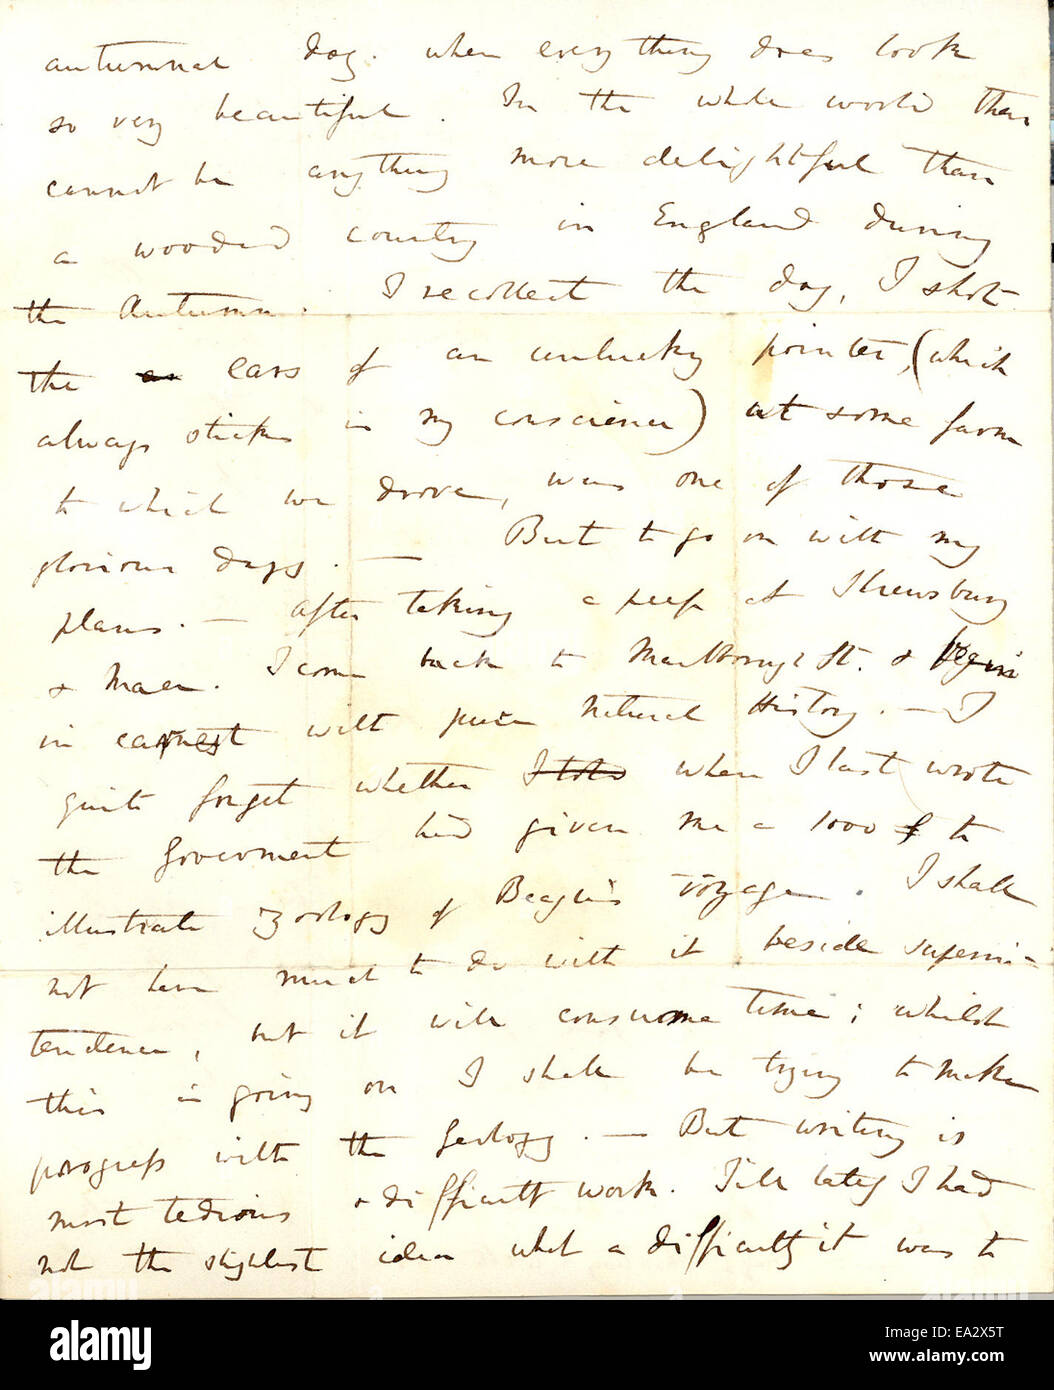 autumnal day. when every thing does look
so very beautiful. In the whole world there
cannot be anything more delightful than
a wooded country in England during
the Autumn. I recollect the day, I shot
the ears of an unlucky pointer, (which
always sticks in my conscience) at some farm
to which we drove, was one of those
glorious days. — But to go on with my
plans. — after taking a peep at Shrewsbury
& Maer. I come back to Marlborough St. & begin
in earnest with pure Natural History. — I
quite forget whether when I last wrote
the Government had given me a 1000£ to
illustrate zoology of Beagle's voyage. I shall
not have much to do with it beside superin-
tendence, but it will consume time; whilst
this is going on I shall be trying to make
progress with the Geology. — But writing is
most tedious & difficult work. Till lately I had
not the slightest idea what a difficulty it was to
alamy
alamy
alamy
EA2X5T
www.alamy.com